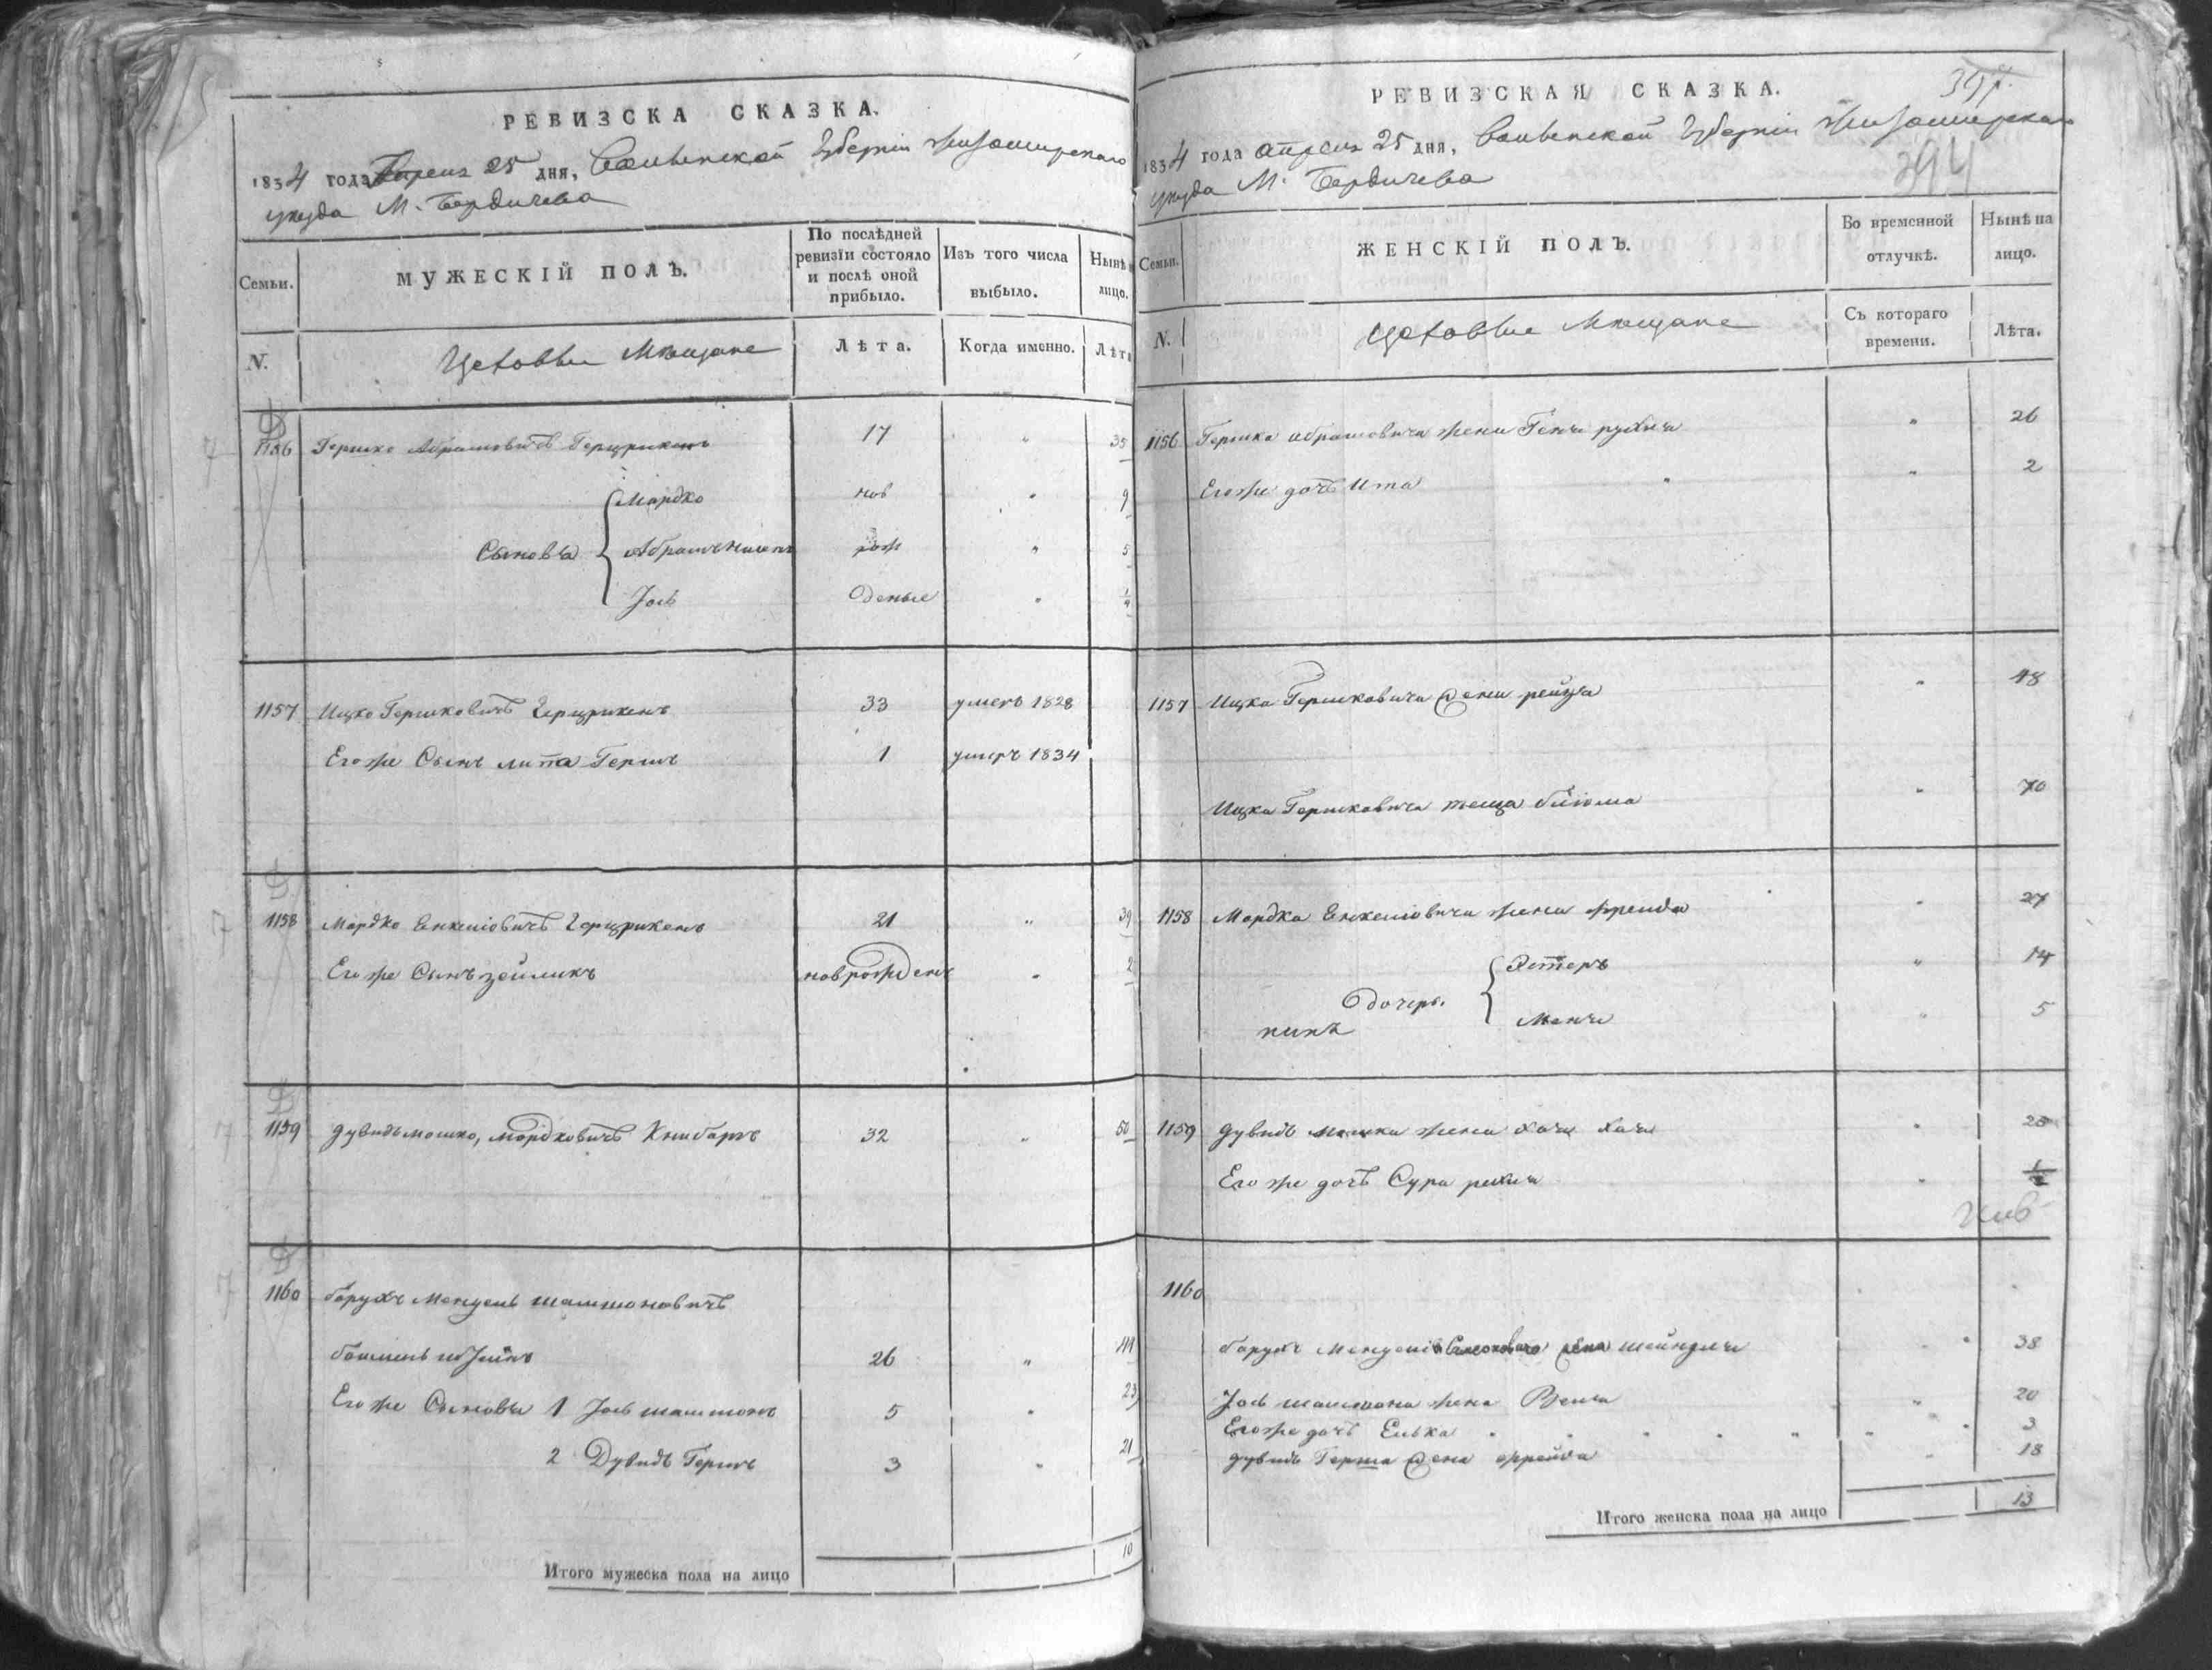 РЕВИЗСКА СКАЗКА.
1834 года Апреля 25 дня, Волынской Губернии Житомирскаго
уезда М. Бердичева
Семьи.
МУЖЕСКІЙ ПОЛЪ.
По послѣдней
ревизіи состояло
и послѣ оной
прибыло.
Изъ того числа
выбыло.
Нынѣ
лицо.
N.
Цеховые Мещане
Лѣта.
Когда именно.
Лѣта
1156 Гершко Абрамовичъ 17 " 35
Мардко нов " 9
Сыновья Абрамъ рож " 5
Іось денные "
1157 Ицко Гершковичъ 33 умеръ 1828
Его же Сынъ липа Гершъ 1 умеръ 1834
1158 Мордко Енкелiовичъ 21 " 39
Его же Сынъ зейликъ новрожденъ " 2
1159 дувидъ мошко, мордковичъ 32 " 50
1160 барухъ Мендель шамшоновичъ
26 "
Его же Сыновья 1 Іось шамшонъ 5 " 23
2 Дувидъ Гершъ 3 " 21
Итого мужеска пола на лицо 10
РЕВИЗСКАЯ СКАЗКА.
397.
394
1834 года апреля 25 дня, Волынской Губернии Житомирскаго
уезда М. Бердичева
Семьи.
ЖЕНСКІЙ ПОЛЪ.
Во временной
отлучкѣ.
Нынѣ на
лицо.
N.
Цеховые Мещане
Съ котораго
времени.
Лѣта.
1156 Гершка абрамовича жена Геня рухля " 26
Его же дочъ Ита " " 2
1157 Ицка Гершковича жена рейзя " 48
Ицка Гершковича теща " 70
1158 Мордка Енкелiовича жена фрейда " 27
Эстеръ " 14
дочерь.
Меня " 5
1159 дувидъ мошка жена хая "
Его же дочъ Сура рихля "
1160
барухъ Менделя жена шейндля " 38
Іось шамшона жена " 20
Его же дочъ Елька " " " " " " " 3
дувидъ Герша жена фрейда " 18
Итого женска пола на лицо 13